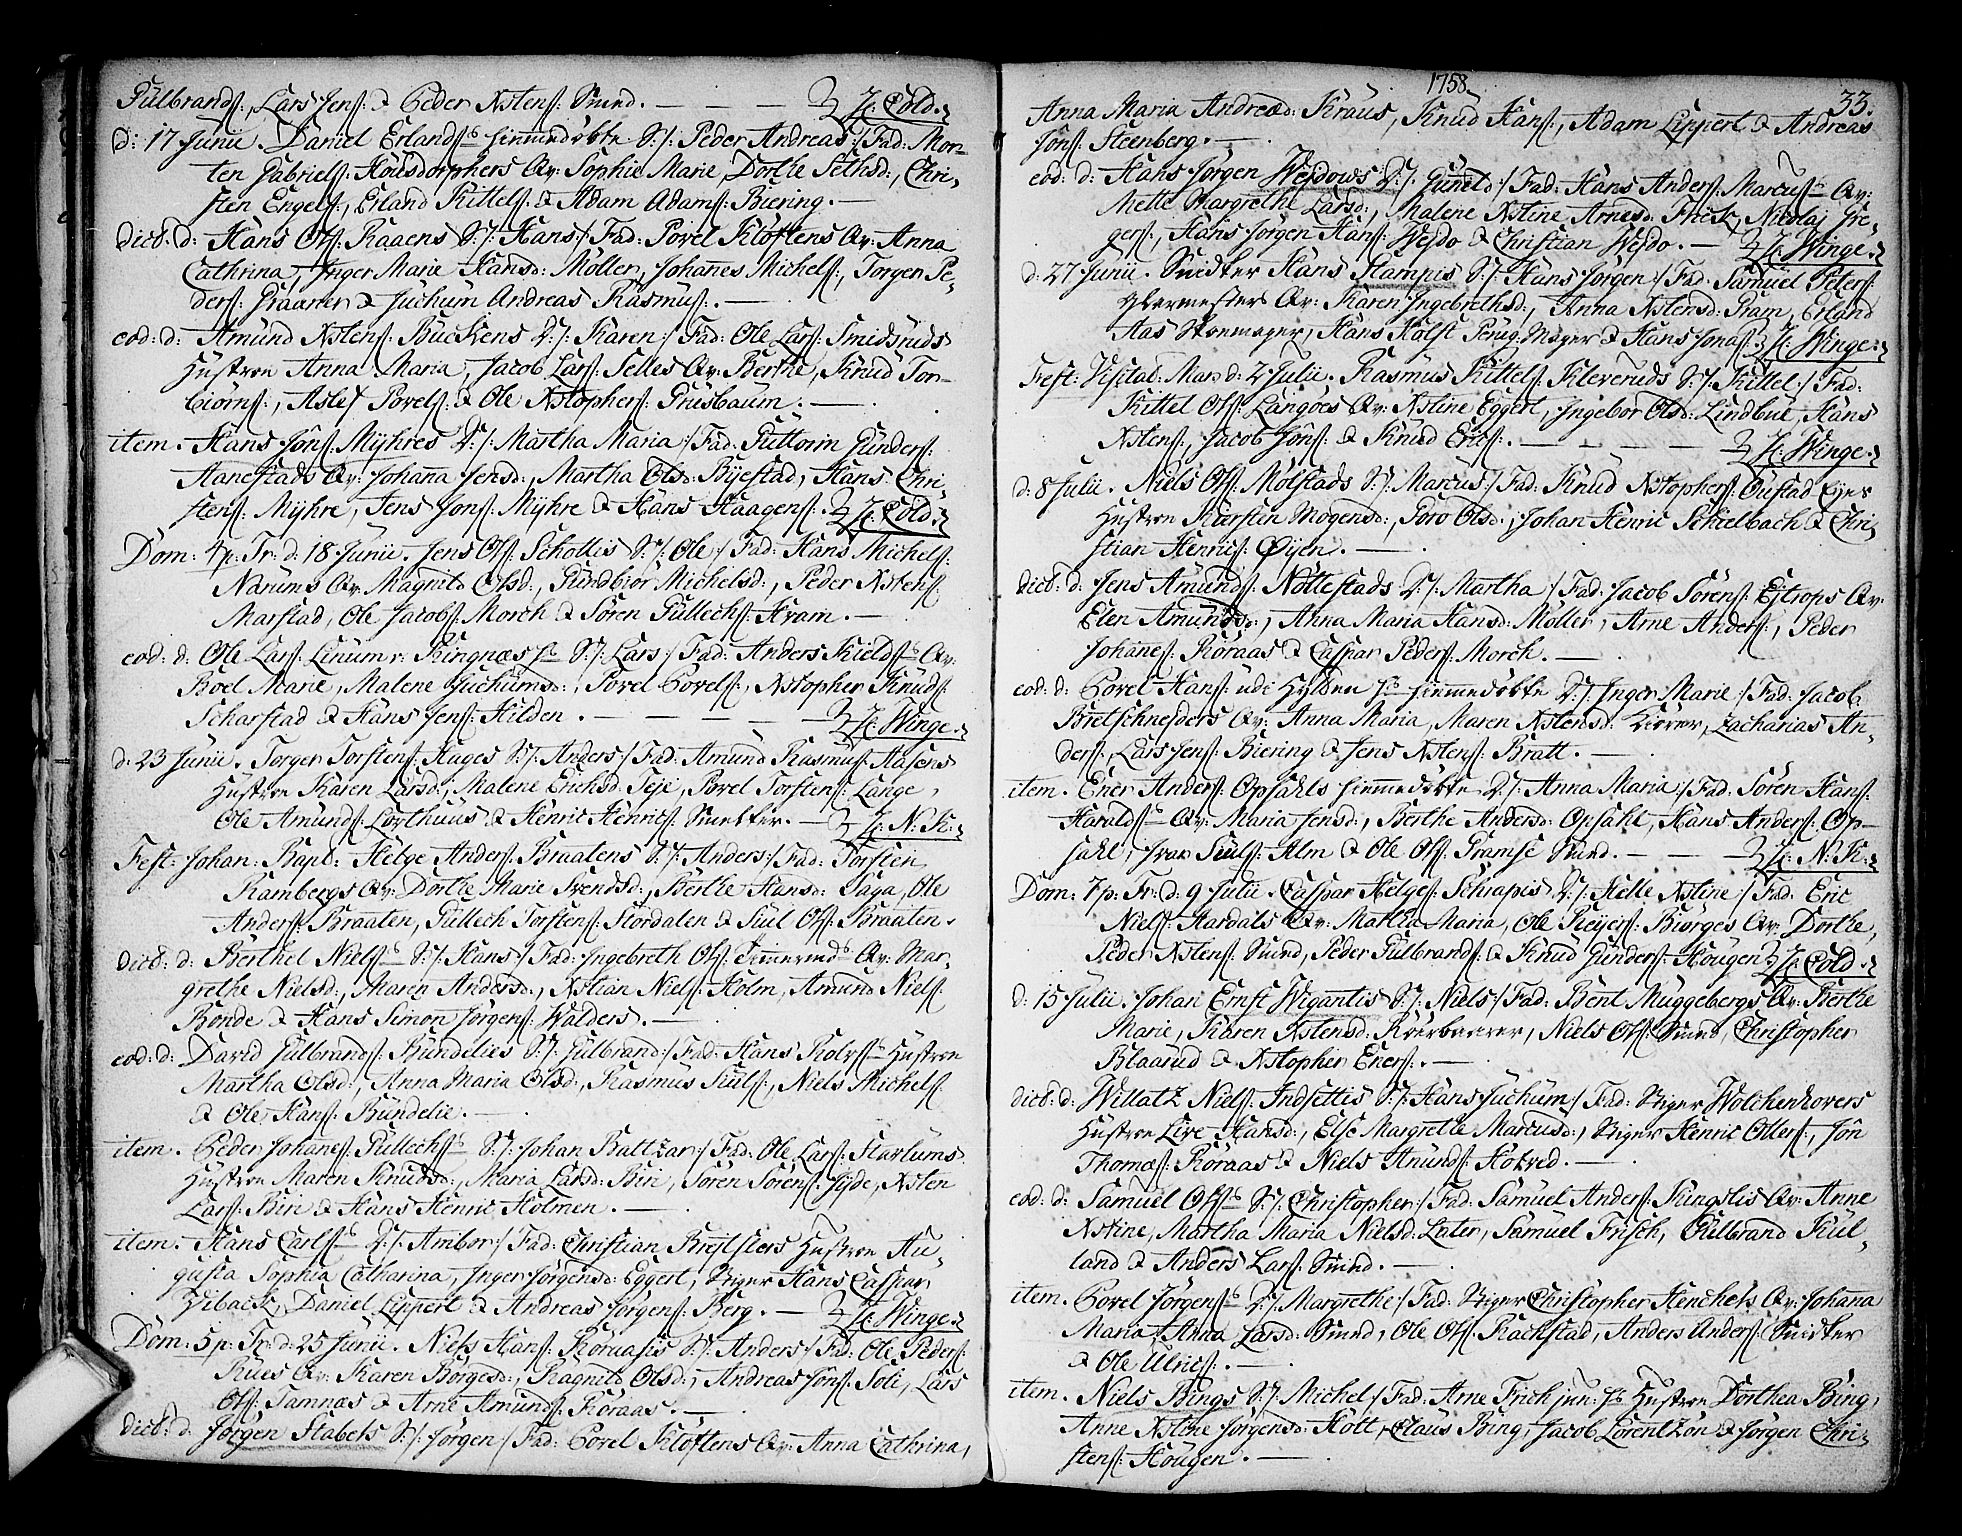 Gulbrands:, Lars Jens: & Peder Xstens: Smed. — — — Hr: Cold.
d: 17 Junii. Daniel Erlands: hiemmedöbte S:/: Peder Andreas:/ Fad: Mor-
ten Gabriels: Housdorphers Qv: Sophie Marie, Dorthe Sethsd:, Chri-
sten Engels:, Erland Kittels: & Adam Adams: Biering. —
Dicto d: Hans Ols: Raaens S:/: Hans:/ Fad: Povel Kloftens Qv: Anna
Cathrina, Inger Marie Hansd: Möller, Johannes Michels:, Torger Pe-
ders: Graarer & Juchum Andreas Rasmus:. —
eod: d: Amund Xstens: Buckens D:/: Karen:/ Fad: Ole Lars: Smidsruds
Hustroe Anna Maria, Jacob Lars: Telles Qv: Berthe, Knud Tor-
biörns:, Asle Povels: & Ole Xstophers: Grüsbaum. —
item. Hans Jöns: Myhres D:/: Martha Maria:/ Fad: Guttorm Gunders:
Aanestads Qv: Johana Jensd:, Martha Olsd: Byestad, Hans Chri-
stens: Myhre, Jens Jons: Myhre & Hans Haagens:. Hr: Cold.
Dom: 4 p: Tr: d: 18 Junii. Jens Ols: Schollis S:/: Ole:/ Fad: Hans Michels:
Narums Qv: Magnild Olsd:, Gundbior Michelsd:, Peder Xstens:
Marstad, Ole Jacobs: Morch & Sören Gullechs: Hram. —
eod: d: Ole Lars: Linum v: Ringnæs S:/: Lars:/ Fad: Anders Kields: Qv:
Boel Marie, Malene Juchumsd:, Povel Povels:, Xstopher Knuds:
Scharstad & Hans Jens: Hilden. — — — Hr: Winge.
d: 23 Junii. Torger Torstens: Hages S:/: Anders:/ Fad: Amund Rasmus: Aasens
Hustroe Karen Larsd:, Malene Erichsd: Teje, Povel Torstens: Lange,
Ole Amunds: Lorthuus & Henric Henrics: Snedker. — Hr: N: K:
Fest: Johan: Bapt: Helge Anders: Braatens S:/: Anders:/ Fad: Torsten
Rambergs Qv: Dorthe Marie Svendsd:, Berthe Hansd: Saga, Ole
Anders: Braaten, Gullech Torstens: Stordalen & Juul Ols: Braaten.
Dicto: d: Berthel Niels: S:/: Hans:/ Fad: Ingebreth Ols: Qv: Mar-
grethe Nielsd:, Maren Andersd:, Xstian Niels: Holm, Amund Niels:
Bonde & Hans Simon Jörgens: Walders. —
eod: d: David Gulbrands: Bundelies S:/: Gulbrand:/ Fad: Hans Rolfs: Hustroe
Martha Olsd:, Anna Maria Olsd:, Rasmus Juuls:, Niels Michels:
& Ole Hans: Bundelie. —
item. Peder Johanes: Gullechs: S:/: Johan Baltzar:/ Fad: Ole Lars: Harlums
Hustroe Maren Knudsd:, Maria Larsd: Biri, Sören Sörens: Jyde, Xsten
Lars: Biri & Hans Henric Holmen. —
item. Hans Carls: D:/: Ambor:/ Fad: Christian Brejtsters Hustroe Au-
gusta Sophia Catharina, Inger Jörgensd: Eggert, Stiger Hans Caspar
Zibach, Daniel Lippert & Andreas Jörgens: Berg. — Hr: Winge.
Dom: 5 p: Tr: d: 25 Junii. Niels Hans: Röraasis S:/: Anders:/ Fad: Ole Peders:
Rues Qv: Karen Borgesd:, Ragnild Olsd:, Andreas Jöns: Soli, Lars
Ols: Tamnæs & Arne Amunds: Röraas. —
dicto: d: Jörgen Stabels S:/: Jörgen:/ Fad: Povel Kloftens Qv: Anna Cathrina,
1758
33.
Anna Maria Andread: Kraus, Knud Hans:, Adam Lippert & Andreas
Jöns: Steenberg. —
eod: d: Hans Jörgen Wejdows D:/: Guneld:/ Fad: Hans Anders: Marcus: Qv:
Mette Margrethe Larsd:, Malene Xstine Arnesd: Frisk, Nicolaj Gre-
gers:, Hans Jörgen Hans: Wejdo & Christian Wejdo. — Hr: Winge.
d: 27 Junii. Snidker Hans Hampis S:/: Hans Jörgen:/ Fad: Samuel Peters:
Glarmester Qv: Karen Ingebrethsd:, Anna Xstensd: Fram, Erland
Aas Skomager, Hans Holst Peruq: Mager & Hans Jonas:. Hr: Winge.
Fest: Visitat: Mar: d: 2 Julii. Rasmus Kittels: Kleveruds S:/: Kittel:/ Fad:
Kittel Ols: Langöes Qv: Xstine Eggert, Ingebor Olsd: Lindbüe, Hans
Xstens:, Jacob Jöns: & Knud Erics:. — — — Hr: Winge.
d: 8 Julii. Niels Ols: Molstads S:/: Marcus:/ Fad: Knud Xstophers: Oustad Eyes
Hustroe Kiersten Mogensd:, Goro Olsd:, Johan Henric Schielbach & Chri-
stian Henrics: Öyen. —
dicto: d: Jens Amunds: Nöttestads D:/: Martha:/ Fad: Jacob Sörens: Ejtrops Qv:
Elen Amundsd:, Anna Maria Hansd: Möller, Arne Anders:, Peder
Johanes: Röraas & Caspar Peders: Morch. —
eod: d: Povel Hans: udi Hylden hiemmedöbte D:/: Inger Marie:/ Fad: Jacob
Bretschnejders Qv: Anna Maria, Maren Xstensd: Kiörer, Zacharias An-
ders:, Lars Jens: Biering & Jens Xstens: Bratt. —
item. Ener Anders: Opsahls hiemmedöbte D:/: Anna Maria:/ Fad: Sören Hans:
Haralds: Qv: Maria Jensd:, Berthe Andersd: Opsahl, Hans Anders: Op-
sahl, Ivar Juuls: Alm & Ole Ols: Gramse Smed. — — Hr: N: K:
Dom: 7 p: Tr: d: 9 Julii. Caspar Helges: Schrapis D:/: Helle Xstine:/ Fad: Eric
Niels: Hardals Qv: Martha Maria, Ole Reyers: Biörges Qv: Dorthe,
Peder Xstens: Smed, Peder Gulbrands: & Knud Gunders: Hougen. Hr: Cold.
d: 15 Julii. Johan Ernst Wigantis S:/: Niels:/ Fad: Bent Muggebergs Qv: Berthe
Marie, Karen Xstensd: Körbaarer, Niels Ols: Smed, Christopher
Blaarud & Xstopher Eners:. —
dicto: d: Willatz Niels: Indsettis S:/: Hans Juchum:/ Fad: Stiger Wolchenhovers
Hustroe Live Hansd:, Else Margrethe Marcusd:, Stiger Henric Ollers:, Jön
Thomæs: Röraas & Niels Anunds: Hotved. —
eod: d: Samuel Ols: S:/: Christopher:/ Fad: Samuel Anders: Kungslis Qv: Anne
Xstine, Martha Maria Nielsd: Later, Samuel Frisch, Gulbrand Kul-
land & Anders Lars: Smed. —
item. Povel Jörgens: D:/: Margrethe:/ Fad: Stiger Christopher Henchels Qv: Johana
Maria, Anna Larsd: Smed, Ole Ols: Rachstad, Anders Anders: Snidker
& Ole Ulrics:. —
item. Niels Bings S:/: Michel:/ Fad: Arne Frich jun: Hustroe Dorthea Bing,
Anne Xstine Jörgensd: Holt, Claus Bing, Jacob Lorentzön & Jörgen Chri-
stens: Hougen. —